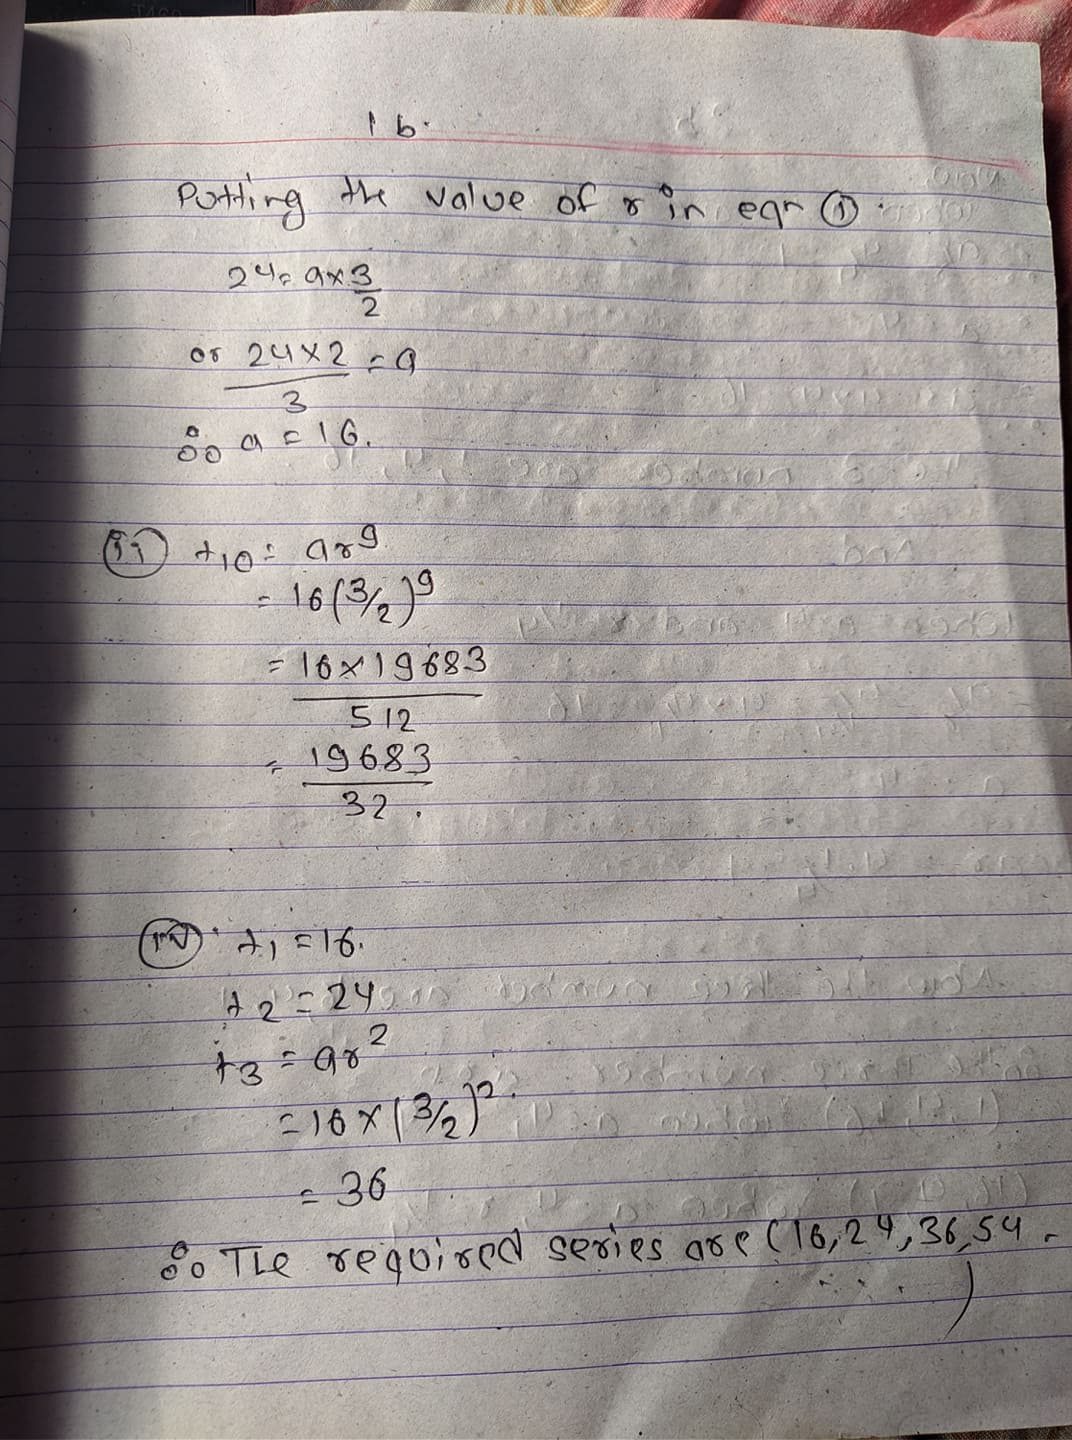 16.
Putting the value of r in eqn ①.
24 = a × 3/2
or 24×2/3 = a
∴ a = 16.
(ii) t₁₀ = ar⁹
= 16(3/2)⁹
= 16×19683/512
= 19683/32.
(iv). t₁ = 16.
t₂ = 24
t₃ = ar²
= 16×(3/2)².
= 36
∴ The required series are (16,24,36,54.
....)